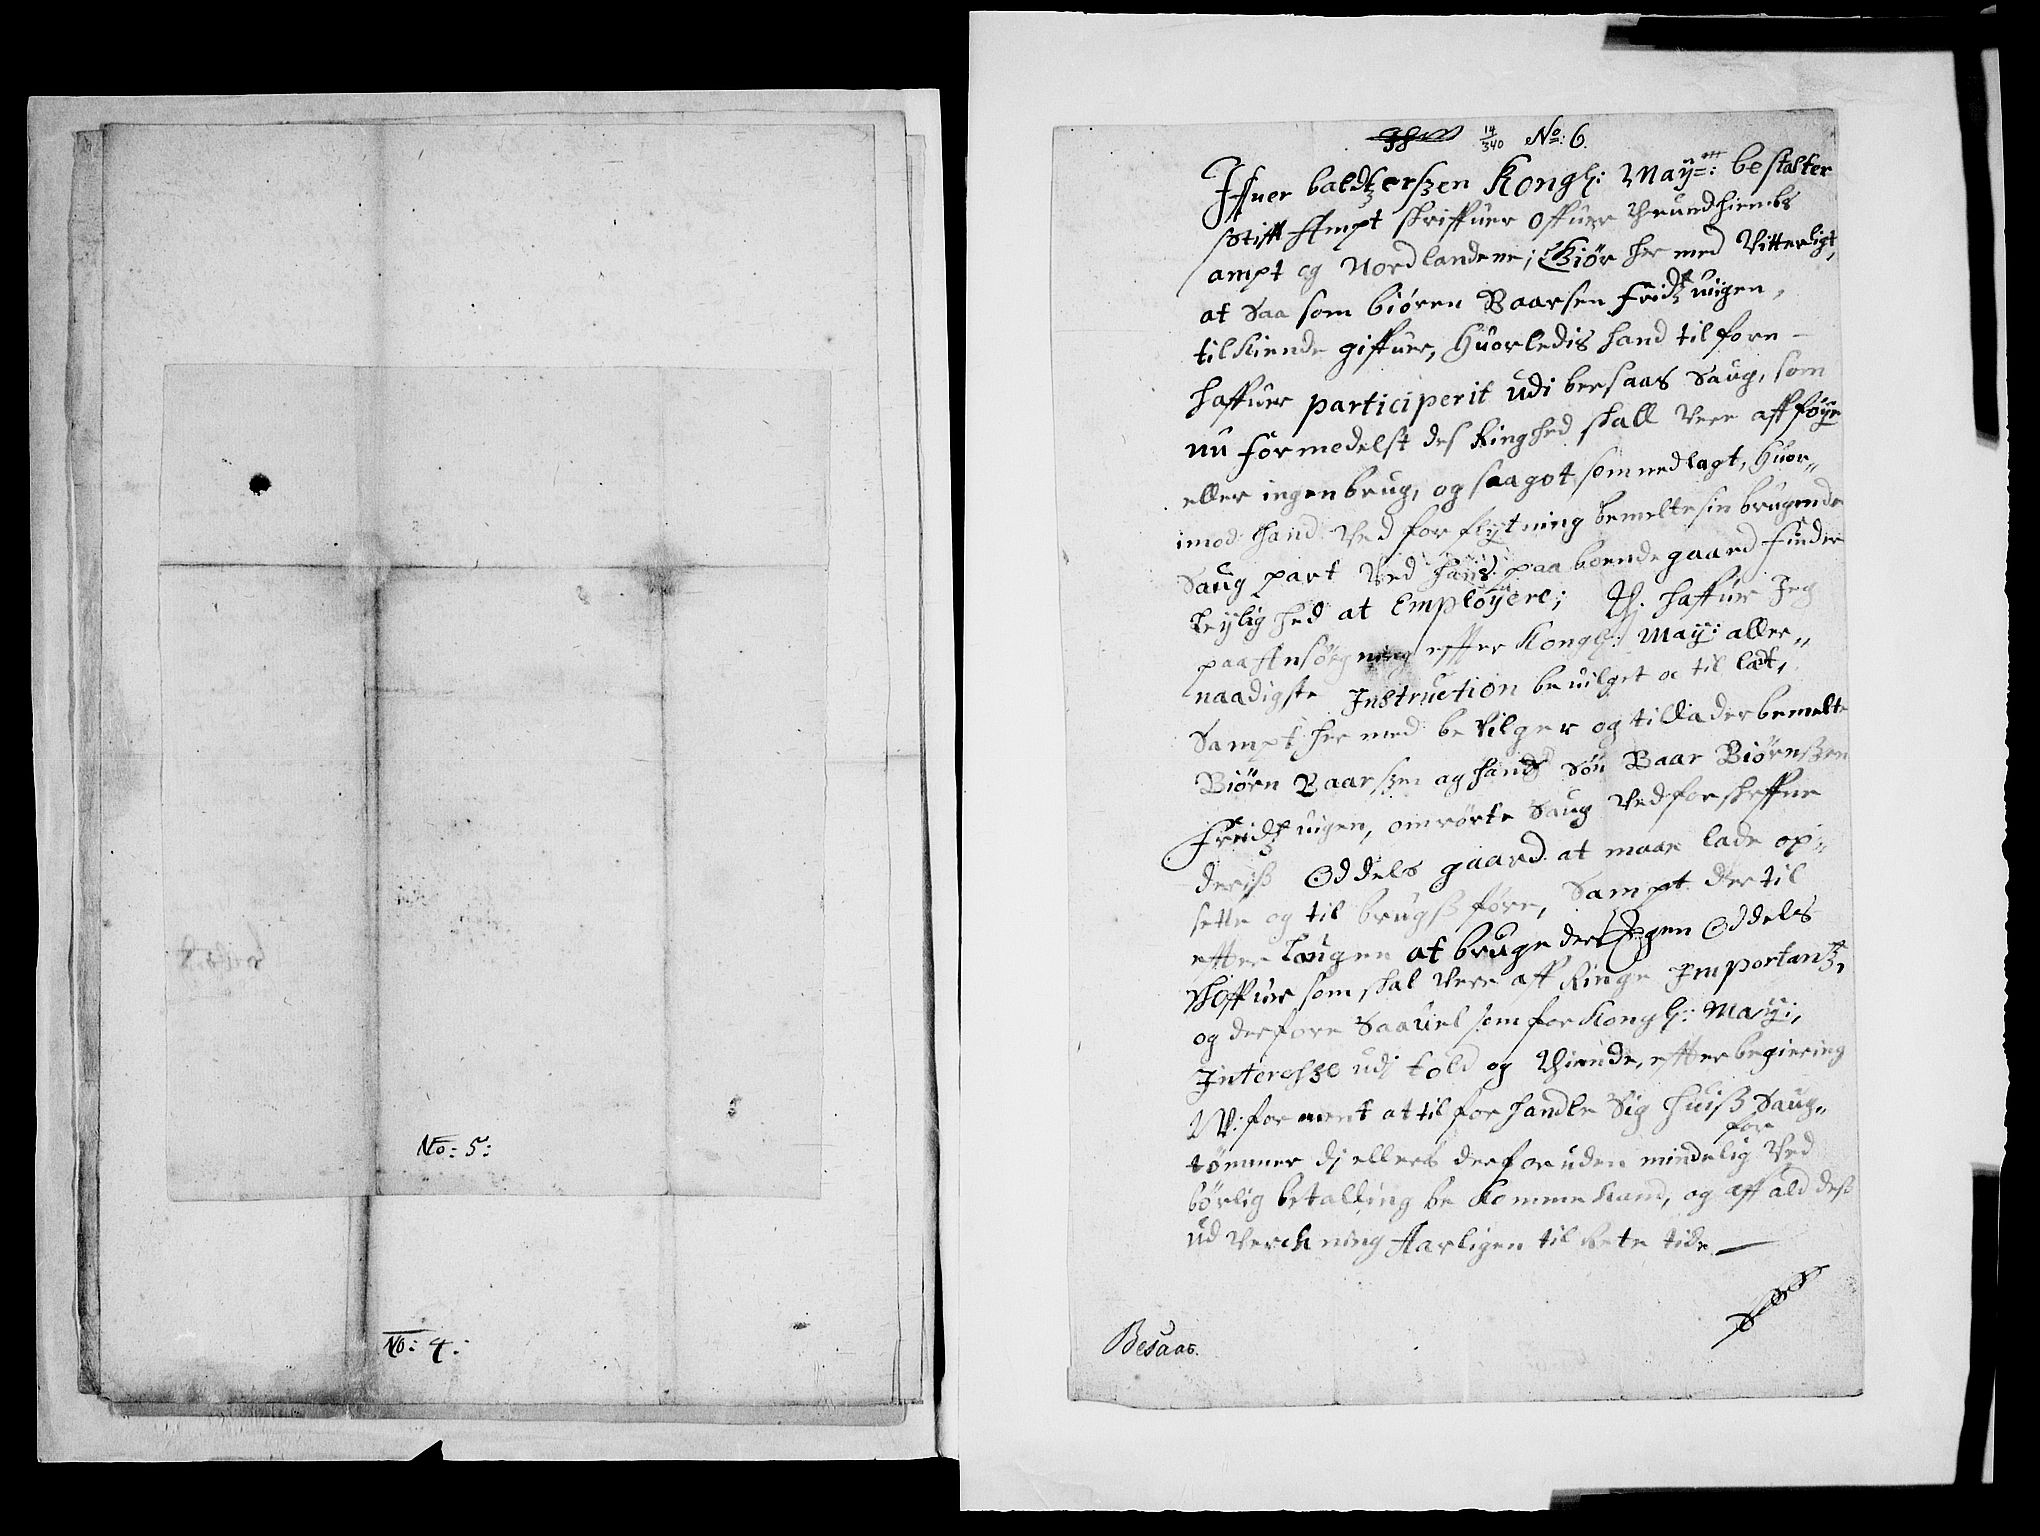 No: 5:
No: 4:
14/340 No: 6.
Iffuer baldtzerszen Kongl: Maytt: bestalter
Stifft Ampt skriffuer offuer Thrundhiembs
ampt og Nordlandene; Giör her med Vitterligt,
at Saa som biören Baarsen Fridtzuigen,
tilkiende giffuer, huorledis hand tilforn
haffuer participerit udi bersaas Saug, som
nu formedelst des Ringhed skall vere aff föye
eller ingen brug, og saagot som nedlagt, huor„
imod hand ved forflytning bemelte sin brugende
Saug part ved hans paaboende gaard finder
Leylighed at Employere; Th. haffuer Jeg
paa Ansögning effter Kongl: May: aller„
naadigste Instruction beuilget oc til ladt,
Sampt her med beVilger og tillader bemelte
Biörn Baarszen og hands Sön Baar Biörnszen
Fridtzuigen, omrörte Saug ved forskreffne
deris Oddels gaard at maae lade op„
sette og til brugs före, Sampt der til
effter Laugen at bruge der Egen Oddels
skoffuer som skal vere aff Ringe Importantz,
og derfore Saauel som for Kongl: May:
Interesze udj told og thiende, effter begiering
W: forment at tilforhandle Sig huis Saug„
tömmer dj ellers der foruden mindelig for ved
börlig betalling bekomme kand, og aff ald des
udverckning Aarligen til Rette tide
Besaas.